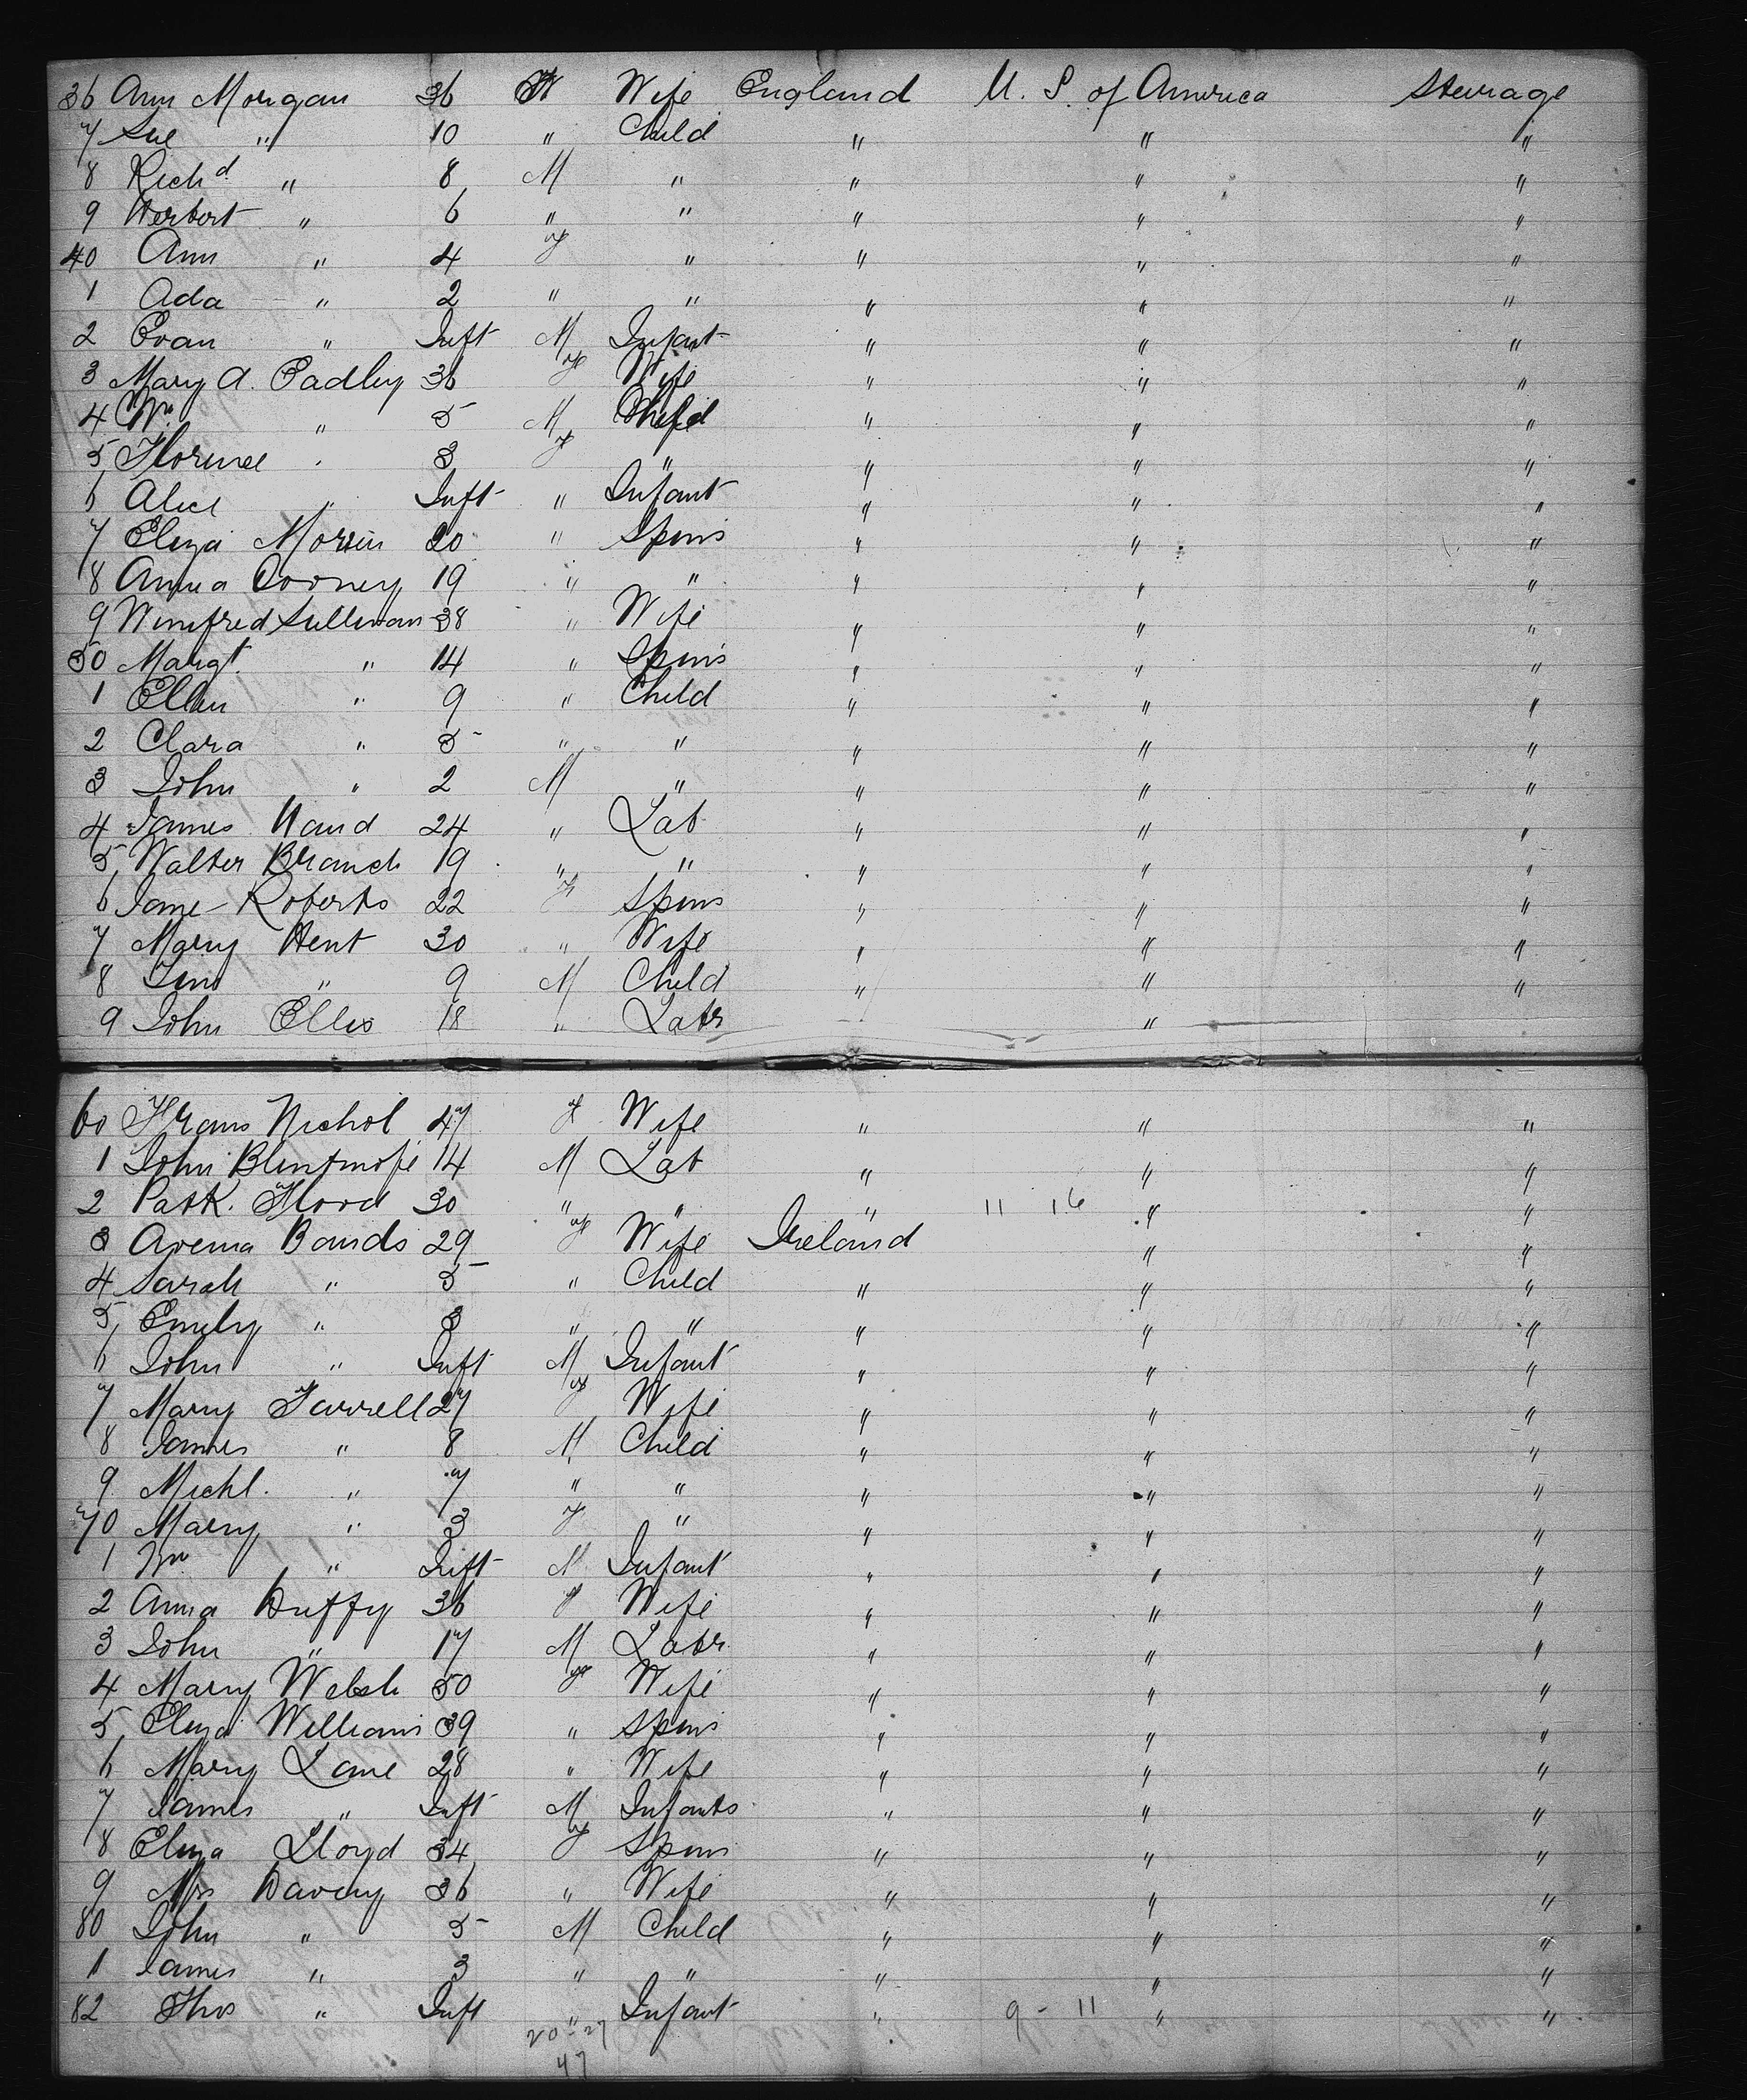 36 Ann Morgan 36 F Wife England U. S. of America Steerage
7 Sue " 10 " Child " " "
8 Richd. " 8 M " " " "
9 Herbert " 6 " " " " "
40 Ann " 4 f " " " "
1 Ada " 2 " " " " "
2 Evan " Inft M Infant " " "
3 Mary A. Padley 36 f Wife " " "
4 Wm. " 5 M Child " " "
5 Florence " 3 f " " " "
6 Alice " Inft " Infant " " "
7 Eliza Morrin 20 " Spins " " "
8 Anna Cooney 19 " " " " "
9 Winifred Sullivan 38 " Wife " " "
50 Margt. " 14 " Spins " " "
1 Ellen " 9 " Child " " "
2 Clara " 5 " " " " "
3 John " 2 M " " " "
4 James Hand 24 " Lab " " "
5 Walter Branch 19 " " " " "
6 Jane Roberts 22 f Spins " " "
7 Mary Hent 30 " Wife " " "
8 " 9 M Child " " "
9 John Ellis 18 " Labr " "
60 Frans Nichol 47 f Wife " " "
1 John 14 M Lab " " "
2 Patk. Flood 30 " " " 11 16 " "
3 Bands 29 f Wife Ireland " "
4 Sarah " 5 " Child " " "
5 Emily " 3 " " " " "
6 John " Inft M Infant " " "
7 Mary Farrell 27 f Wife " " "
8 James " 8 M Child " " "
9 Michl. " 7 " " " " "
70 Mary " 3 f " " " "
1 Wm " Inft M Infant " " "
2 Anna Duffy 36 f Wife " " "
3 John " 17 M Labr. " " "
4 Mary Welsh 50 f Wife " " "
5 Eliza Williams 39 " Spins " " "
6 Mary Lane 28 " Wife " " "
7 James " Inft M Infants " " "
8 Eliza Lloyd 34 f Spins " " "
9 Mrs Davey 36 " Wife " " "
80 John " 5 M Child " " "
1 James " 3 " " " " "
82 Thos " Inft " Infant " 9 - 11 " "
20 - 27
47